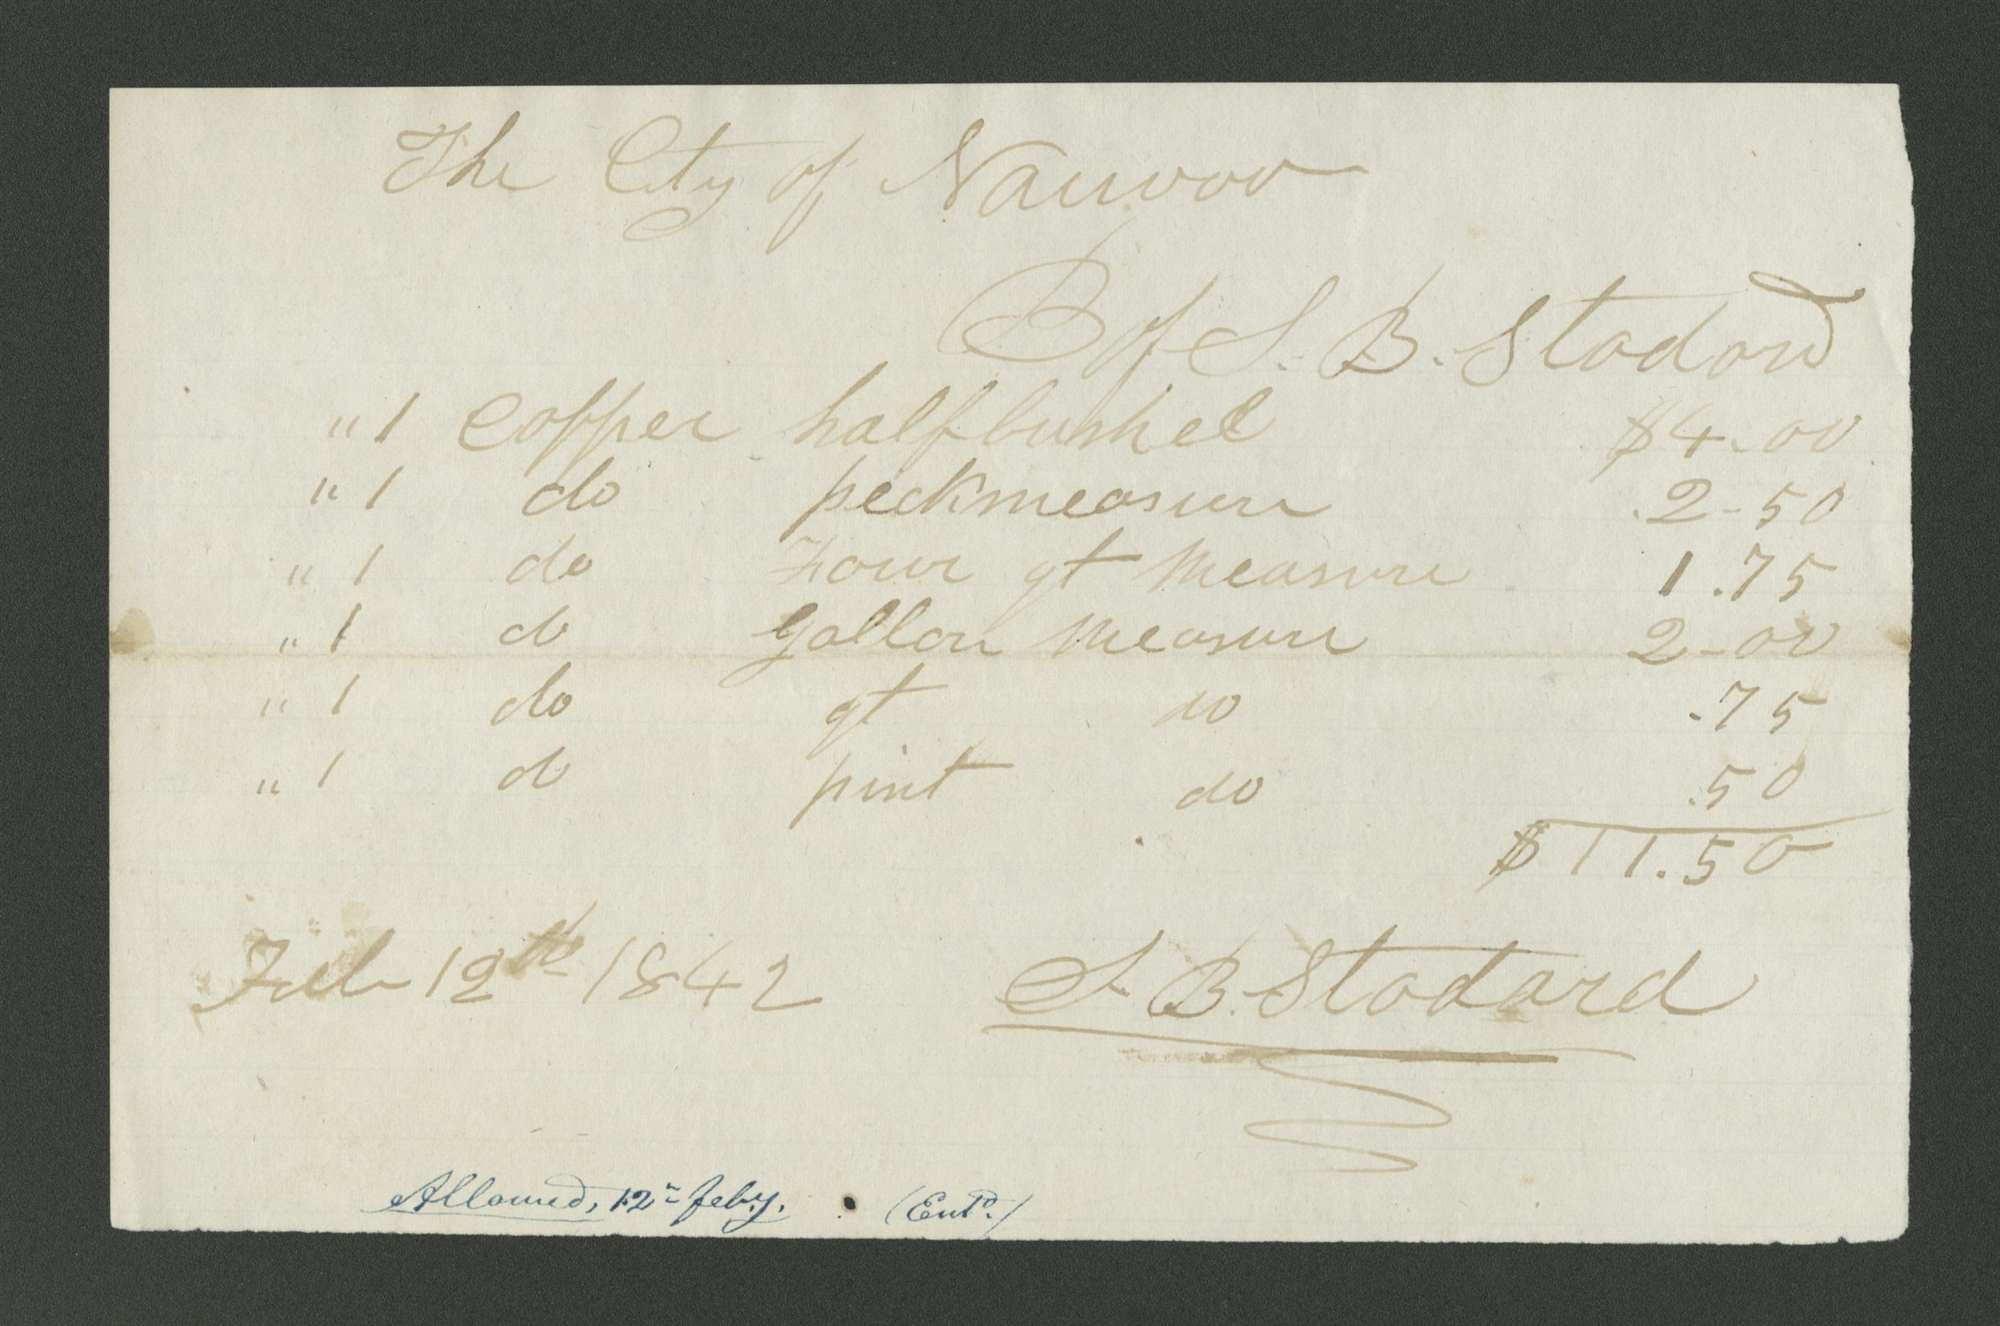 The City of Nauvoo
B of S. B. Stodard
" 1 copper halfbushel $4.00
" 1 do peckmeasure 2-50
" 1 do Four qt measure 1.75
" 1 do Gallon measure 2-00
" 1 do qt do .75
" 1 do pint do .50
$11.50
Feb 12th 1842 S. B. Stodard
Allowed, 12th feby. (Entd.)